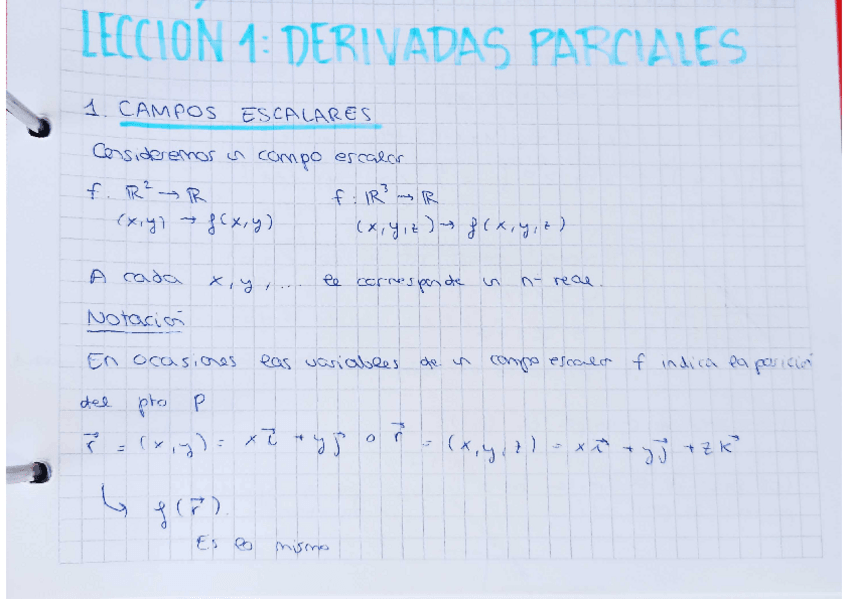 LECCIÓN 1: DERIVADAS PARCIALES
1. CAMPOS ESCALARES
Consideremos un campo escalar
f: ℝ² → ℝ f: ℝ³ → ℝ
(x,y) → f(x,y) (x,y,z) → f(x,y,z)
A cada x, y, ... le corresponde un nº real.
Notación
En ocasiones las variables de un campo escalar f indica la posición
del pto P
r⃗ = (x,y) = x i⃗ + y j⃗ o r⃗ = (x,y,z) = x i⃗ + y j⃗ + z k⃗
↳ f(r⃗).
Es lo mismo